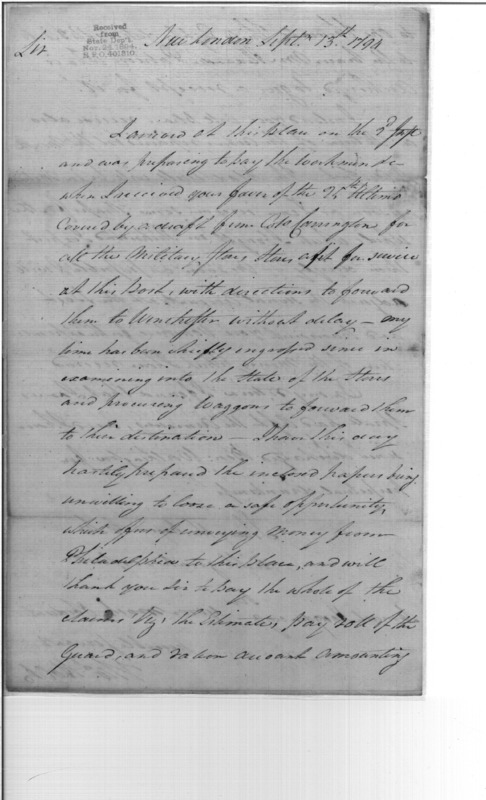 Received
from
State Dep't
Nov. 23, 1894,
R.P.O. 401310.
Sir New London Septr. 13th 1794
I arrived at this place on the 2d Inst
and was preparing to pay the workmen &c
when I received your favor of the 25th Ultimo
Covered by a draft from Colo Carrington for
all the Military Stores fit for service
at this Post, with directions to forward
them to Winchester without delay — my
time has been chiefly ingrossed since in
examining into the State of the Stores
and procuring Waggons to forward them
to their destination — I have this day
hastily prepared the inclosed papers being
unwilling to loose a safe opportunity,
which offers of conveying Money from
Philadelphia to this place, and will
thank you Sir to pay the whole of the
claims Viz: the Estimate, pay roll of the
Guard, and ration account amounting